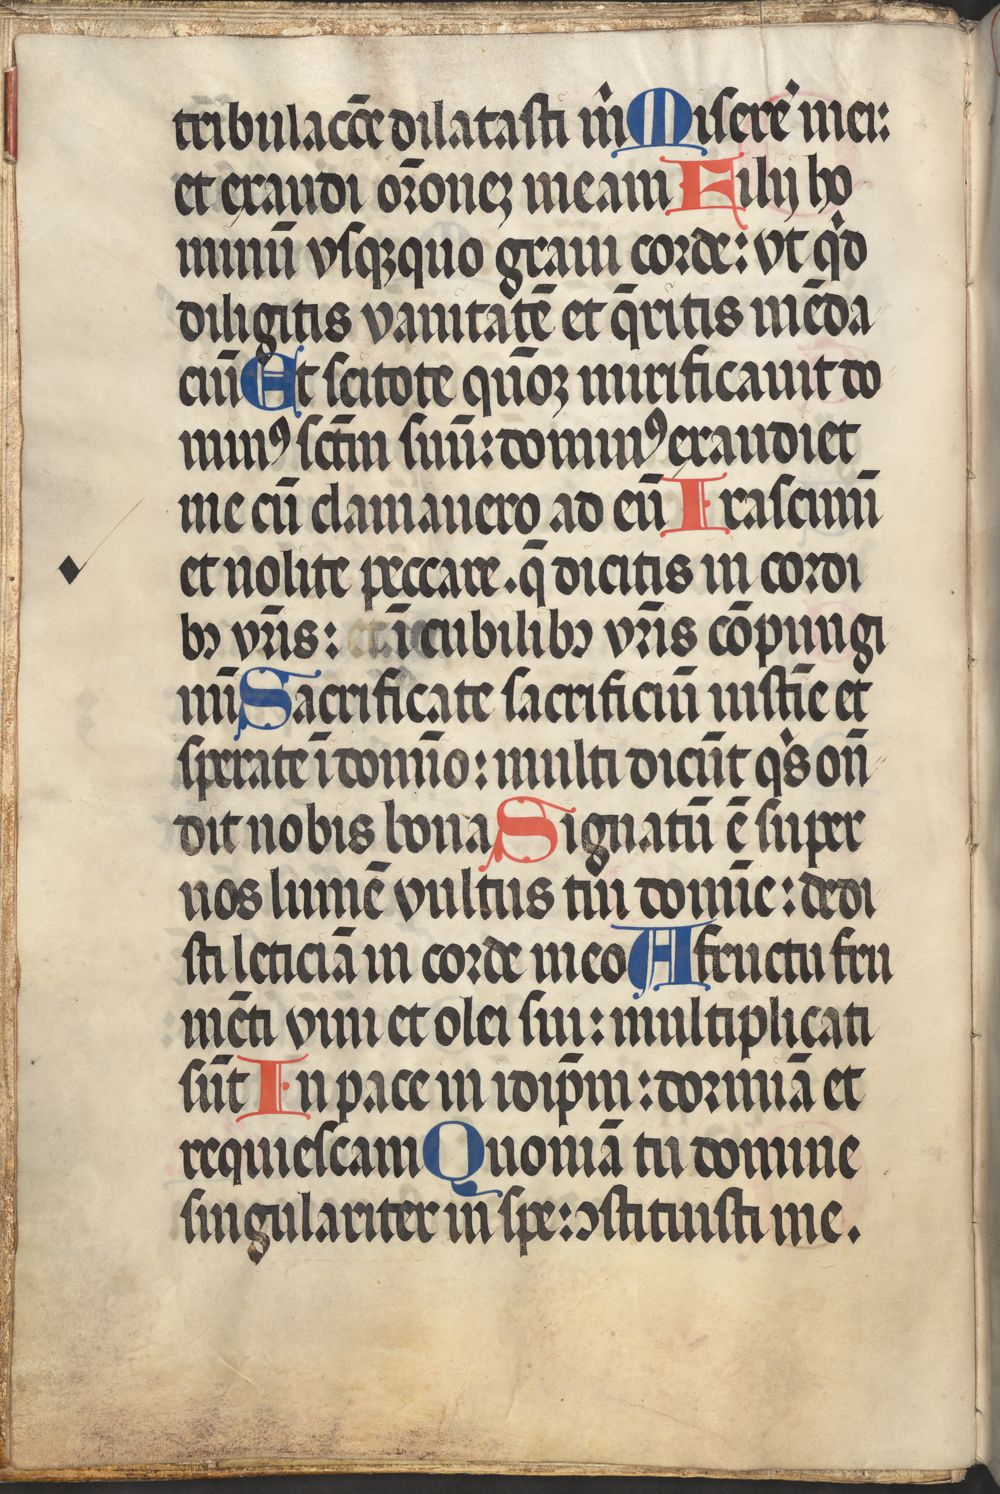 tribulacōe dilatasti m̊ Misere᷑ mei:
et exaudi or̄onez meam Filij ho
minū vsqꝫquo graui corde: vt qͥd
diligitis vanitatē et q̄ritis mēda
ciū Et scitote qūoꝫ mirificauit do
minꝰ sc̄tm suū: dominꝰ exaudiet
me cū clamauero ad eū Irascimī
et nolite peccare. q̄ dicitis in cordi
bꝫ vr̄is: et ī cubilibꝫ vr̄is cōpungi
mī Sacrificate sacrificiū iustīe et
sperate ī domīo: multi dicūt qͥs on̄
dit nobis bona Signatū ē super
nos lumē vultus tui domīe: dedi
sti leticiā in corde meo A fructu fru
mēti vini et olei sui: multiplicati
sūt In pace in idip̄m: dormiā et
requiescam Quoniā tu domine
singulariter in spe: ꝯstituisti me.